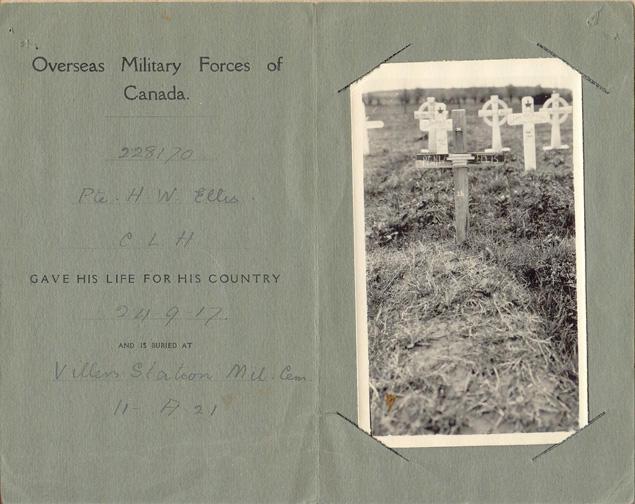 Overseas Military Forces of
Canada.
228170
Pte. H W. Ellis.
C L H
GAVE HIS LIFE FOR HIS COUNTRY
24-9-17.
AND IS BURIED AT
Villers Station Mil. Cem
11- A 21
ELLIS